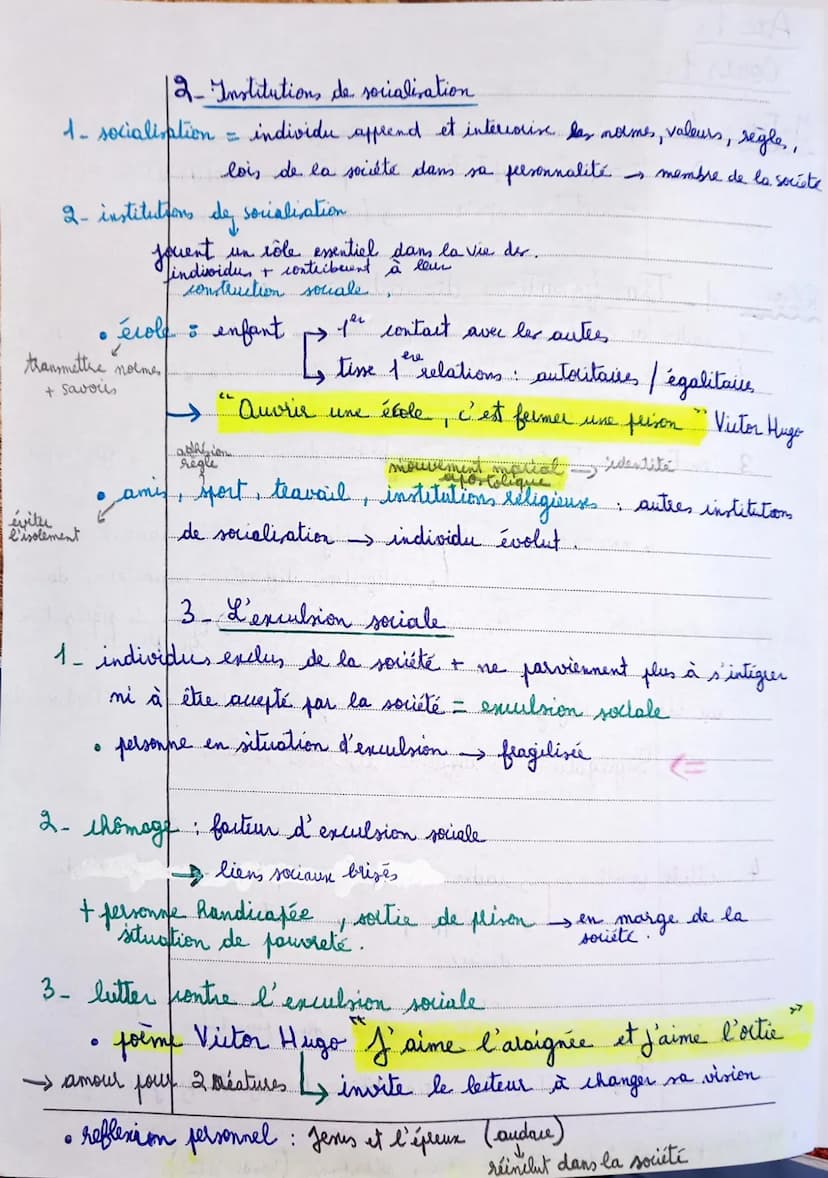 2- Institutions de socialisation
1- socialisation = individu apprend et interiorise les normes, valeurs, règles,
lois de la société dans sa personnalité → membre de la société
2- institutions de socialisation
jouent un rôle essentiel dans la vie des
individus + contribuent à leur
construction sociale.
• école : enfant → 1er contact avec les autres
transmettre normes
+ savoirs
→ tisse 1ère relations : autoritaires / égalitaires
→ "Ouvrir une école, c'est fermer une prison" Victor Hugo
règle
mouvement marial → identité
apostolique
• amis, sport, travail, institutions religieuses : autres institutions
éviter
l'isolement
de socialisation → individu évolut.
3- L'exculsion sociale
1- individus exclus de la société + ne parviennent plus à s'intégrer
ni à être accepté par la société = exculsion sociale
• personne en situation d'exculsion → fragilisée
2- chômage : facteur d'exculsion sociale
→ liens sociaux brisés
+ personne handicapée, sortie de prison → en marge de la
société.
situation de pauvreté.
3- lutter contre l'exculsion sociale
• poème Victor Hugo "J'aime l'araignée et j'aime l'ortie"
→ amour pour 2 créatures → invite le lecteur à changer sa vision
• reflexion personnel : Jesus et l'épreux (audace)
réinclut dans la société